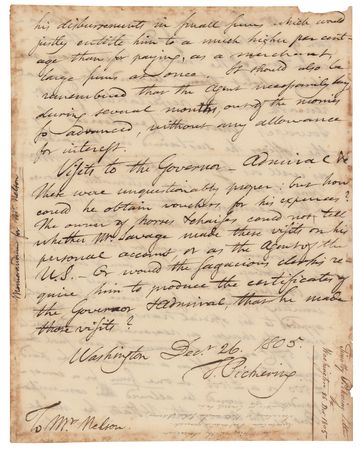 his disbursements in small sums which would
justly entitle him to a much higher per cent-
age than for paying, as a merchant
large sums at once. It should also be
remembered that the Agent necessarily lay
during several months, out of the monies
so advanced, without any allowance
for interest.
Visits to the Governor - Admiral &c
there were unquestionably proper: but how
could he obtain vouchers for his expences?
The owner of horses & chaises could not tell
whether Mr. Savage made these visits on his
personal account or as the Agent of the
U.S. - Or would the sagacious clerks re-
quire him to produce the certificates of
the Governor & Admiral, that he made
those visits?
Washington Decr. 26. 1805.
T. Pickering
To Mr. Nelson.
Memorandum for Mr Nelson
Washington 26 Dec 1805